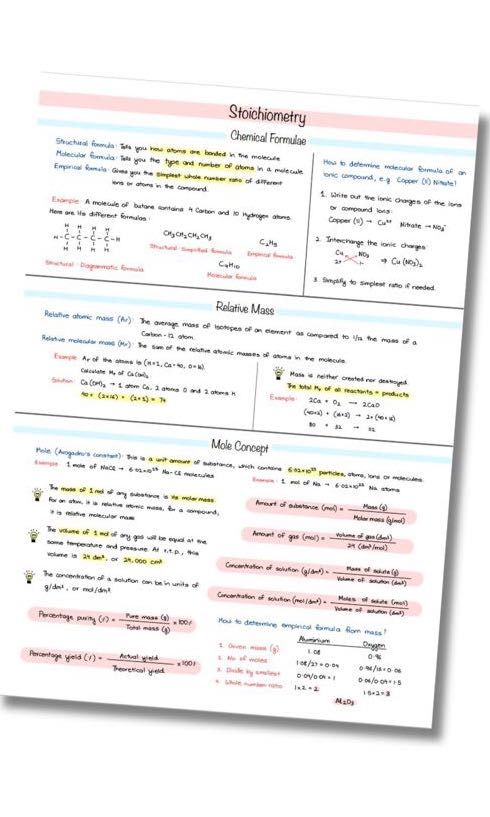 Stoichiometry
Chemical Formulae
Structural formula: Tells you how atoms are bonded in the molecule
Molecular formula: Tells you the type and number of atoms in a molecule
Empirical formula: Gives you the simplest whole number ratio of different
ions or atoms in the compound.
Example: A molecule of butane contains 4 Carbon and 10 Hydrogen atoms.
Here are its different formulas:
H H H H
H-C-C-C-C-H
H H H H
Structural - Diagrammatic formula
CH₃CH₂CH₂CH₃
Structural - Simplified formula
C₄H₁₀
Molecular formula
C₂H₅
Empirical formula
How to determine molecular formula of an
ionic compound, e.g. Copper (II) Nitrate?
1. Write out the ionic charges of the ions
or compound ions:
Copper (II) → Cu²⁺ Nitrate → NO₃⁻
2. Interchange the ionic charges
Cu NO₃ ⇒ Cu(NO₃)₂
2+
3. Simplify to simplest ratio if needed.
Relative Mass
Relative atomic mass (Ar): The average mass of isotopes of an element as compared to 1/12 the mass of a
Carbon-12 atom.
Relative molecular mass (Mr): The sum of the relative atomic masses of atoms in the molecule.
Example: Ar of the atoms is (H=1, Ca=40, O=16).
Calculate Mr of Ca(OH)₂
Solution: Ca(OH)₂ → 1 atom Ca, 2 atoms O and 2 atoms H
40 + (2×16) + (2×1) = 74
Mass is neither created nor destroyed.
The total Mr of all reactants = products
Example: 2Ca + O₂ → 2CaO
(40×2) + (16×2) → 2×(40+16)
80 + 32 → 112
Mole Concept
Mole (Avogadro's constant): This is a unit amount of substance, which contains 6.02×10²³ particles, atoms, ions or molecules.
Example: 1 mole of NaCl → 6.02×10²³ Na-Cl molecules
Example: 1 mol of Na → 6.02×10²³ Na atoms
The mass of 1 mol of any substance is its molar mass.
For an atom, it is relative atomic mass, for a compound,
it is relative molecular mass
The volume of 1 mol of any gas will be equal at the
same temperature and pressure. At r.t.p., this
volume is 24 dm³, or 24,000 cm³
The concentration of a solution can be in units of
g/dm³, or mol/dm³.
Amount of substance (mol) = Mass (g)
Molar mass (g/mol)
Amount of gas (mol) = Volume of gas (dm³)
24 (dm³/mol)
Concentration of solution (g/dm³) = Mass of solute (g)
Volume of solution (dm³)
Concentration of solution (mol/dm³) = Moles of solute (mol)
Volume of solution (dm³)
Percentage purity (%) = Pure mass (g) × 100%
Total mass (g)
Percentage yield (%) = Actual yield × 100%
Theoretical yield
How to determine empirical formula from mass?
Aluminium Oxygen
1. Given mass (g) 1.08 0.96
2. No of moles 1.08/27 = 0.04 0.96/16 = 0.06
3. Divide by smallest 0.04/0.04 = 1 0.06/0.04 = 1.5
4. Whole number ratio 1×2 = 2 1.5×2 = 3
Al₂O₃